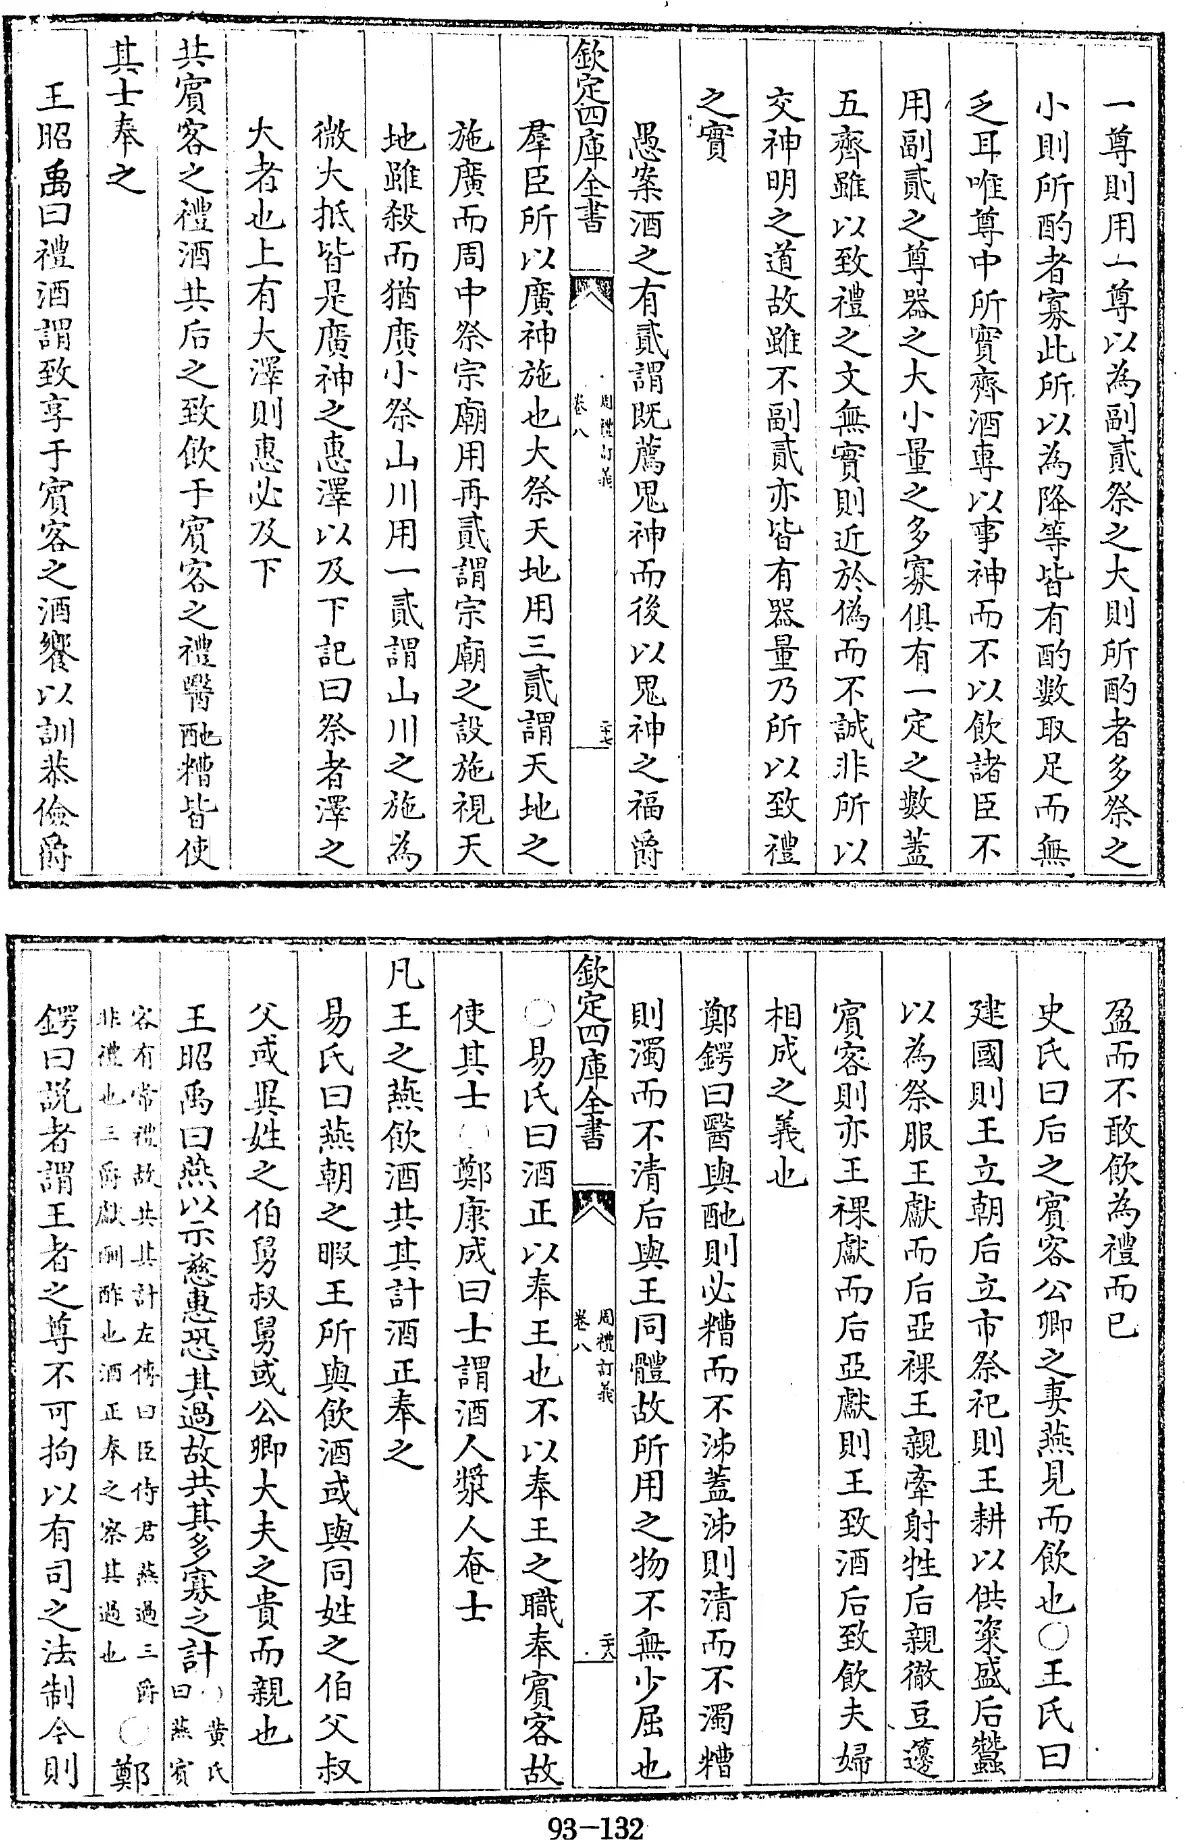 一尊則用一尊以為副貳祭之大則所酌者多祭之
小則所酌者寡此所以為降等皆有酌數取足而無
乏耳唯尊中所實齊酒專以事神而不以飲諸臣不
用副貳之尊器之大小量之多寡俱有一定之數蓋
五齊雖以致禮之文無實則近於偽而不誠非所以
交神明之道故雖不副貳亦皆有器量乃所以致禮
之實
愚案酒之有貳謂既薦鬼神而後以鬼神之福爵
欽定四庫全書
周禮訂義
卷八
二十七
羣臣所以廣神施也大祭天地用三貳謂天地之
施廣而周中祭宗廟用再貳謂宗廟之設施視天
地雖殺而猶廣小祭山川用一貳謂山川之施為
微大抵皆是廣神之惠澤以及下記曰祭者澤之
大者也上有大澤則惠必及下
共賓客之禮酒共后之致飲于賓客之禮醫酏糟皆使
其士奉之
王昭禹曰禮酒謂致享于賓客之酒饗以訓恭儉爵
盈而不敢飲為禮而已
史氏曰后之賓客公卿之妻燕見而飲也○王氏曰
建國則王立朝后立市祭祀則王耕以供粢盛后蠶
以為祭服王獻而后亞祼王親牽射牲后親徹豆籩
賓客則亦王祼獻而后亞獻則王致酒后致飲夫婦
相成之義也
鄭鍔曰醫與酏則必糟而不泲蓋泲則清而不濁糟
則濁而不清后與王同體故所用之物不無少屈也
欽定四庫全書
周禮訂義
卷八
二十八
○易氏曰酒正以奉王也不以奉王之職奉賓客故
使其士○鄭康成曰士謂酒人漿人奄士
凡王之燕飲酒共其計酒正奉之
易氏曰燕朝之暇王所與飲酒或與同姓之伯父叔
父或異姓之伯舅叔舅或公卿大夫之貴而親也
王昭禹曰燕以示慈惠恐其過故共其多寡之計○黄氏
曰燕賓
客有常禮故共其計左傳曰臣侍君燕過三爵
非禮也三爵獻酬酢也酒正奉之察其過也○鄭
鍔曰説者謂王者之尊不可拘以有司之法制今則
93-132